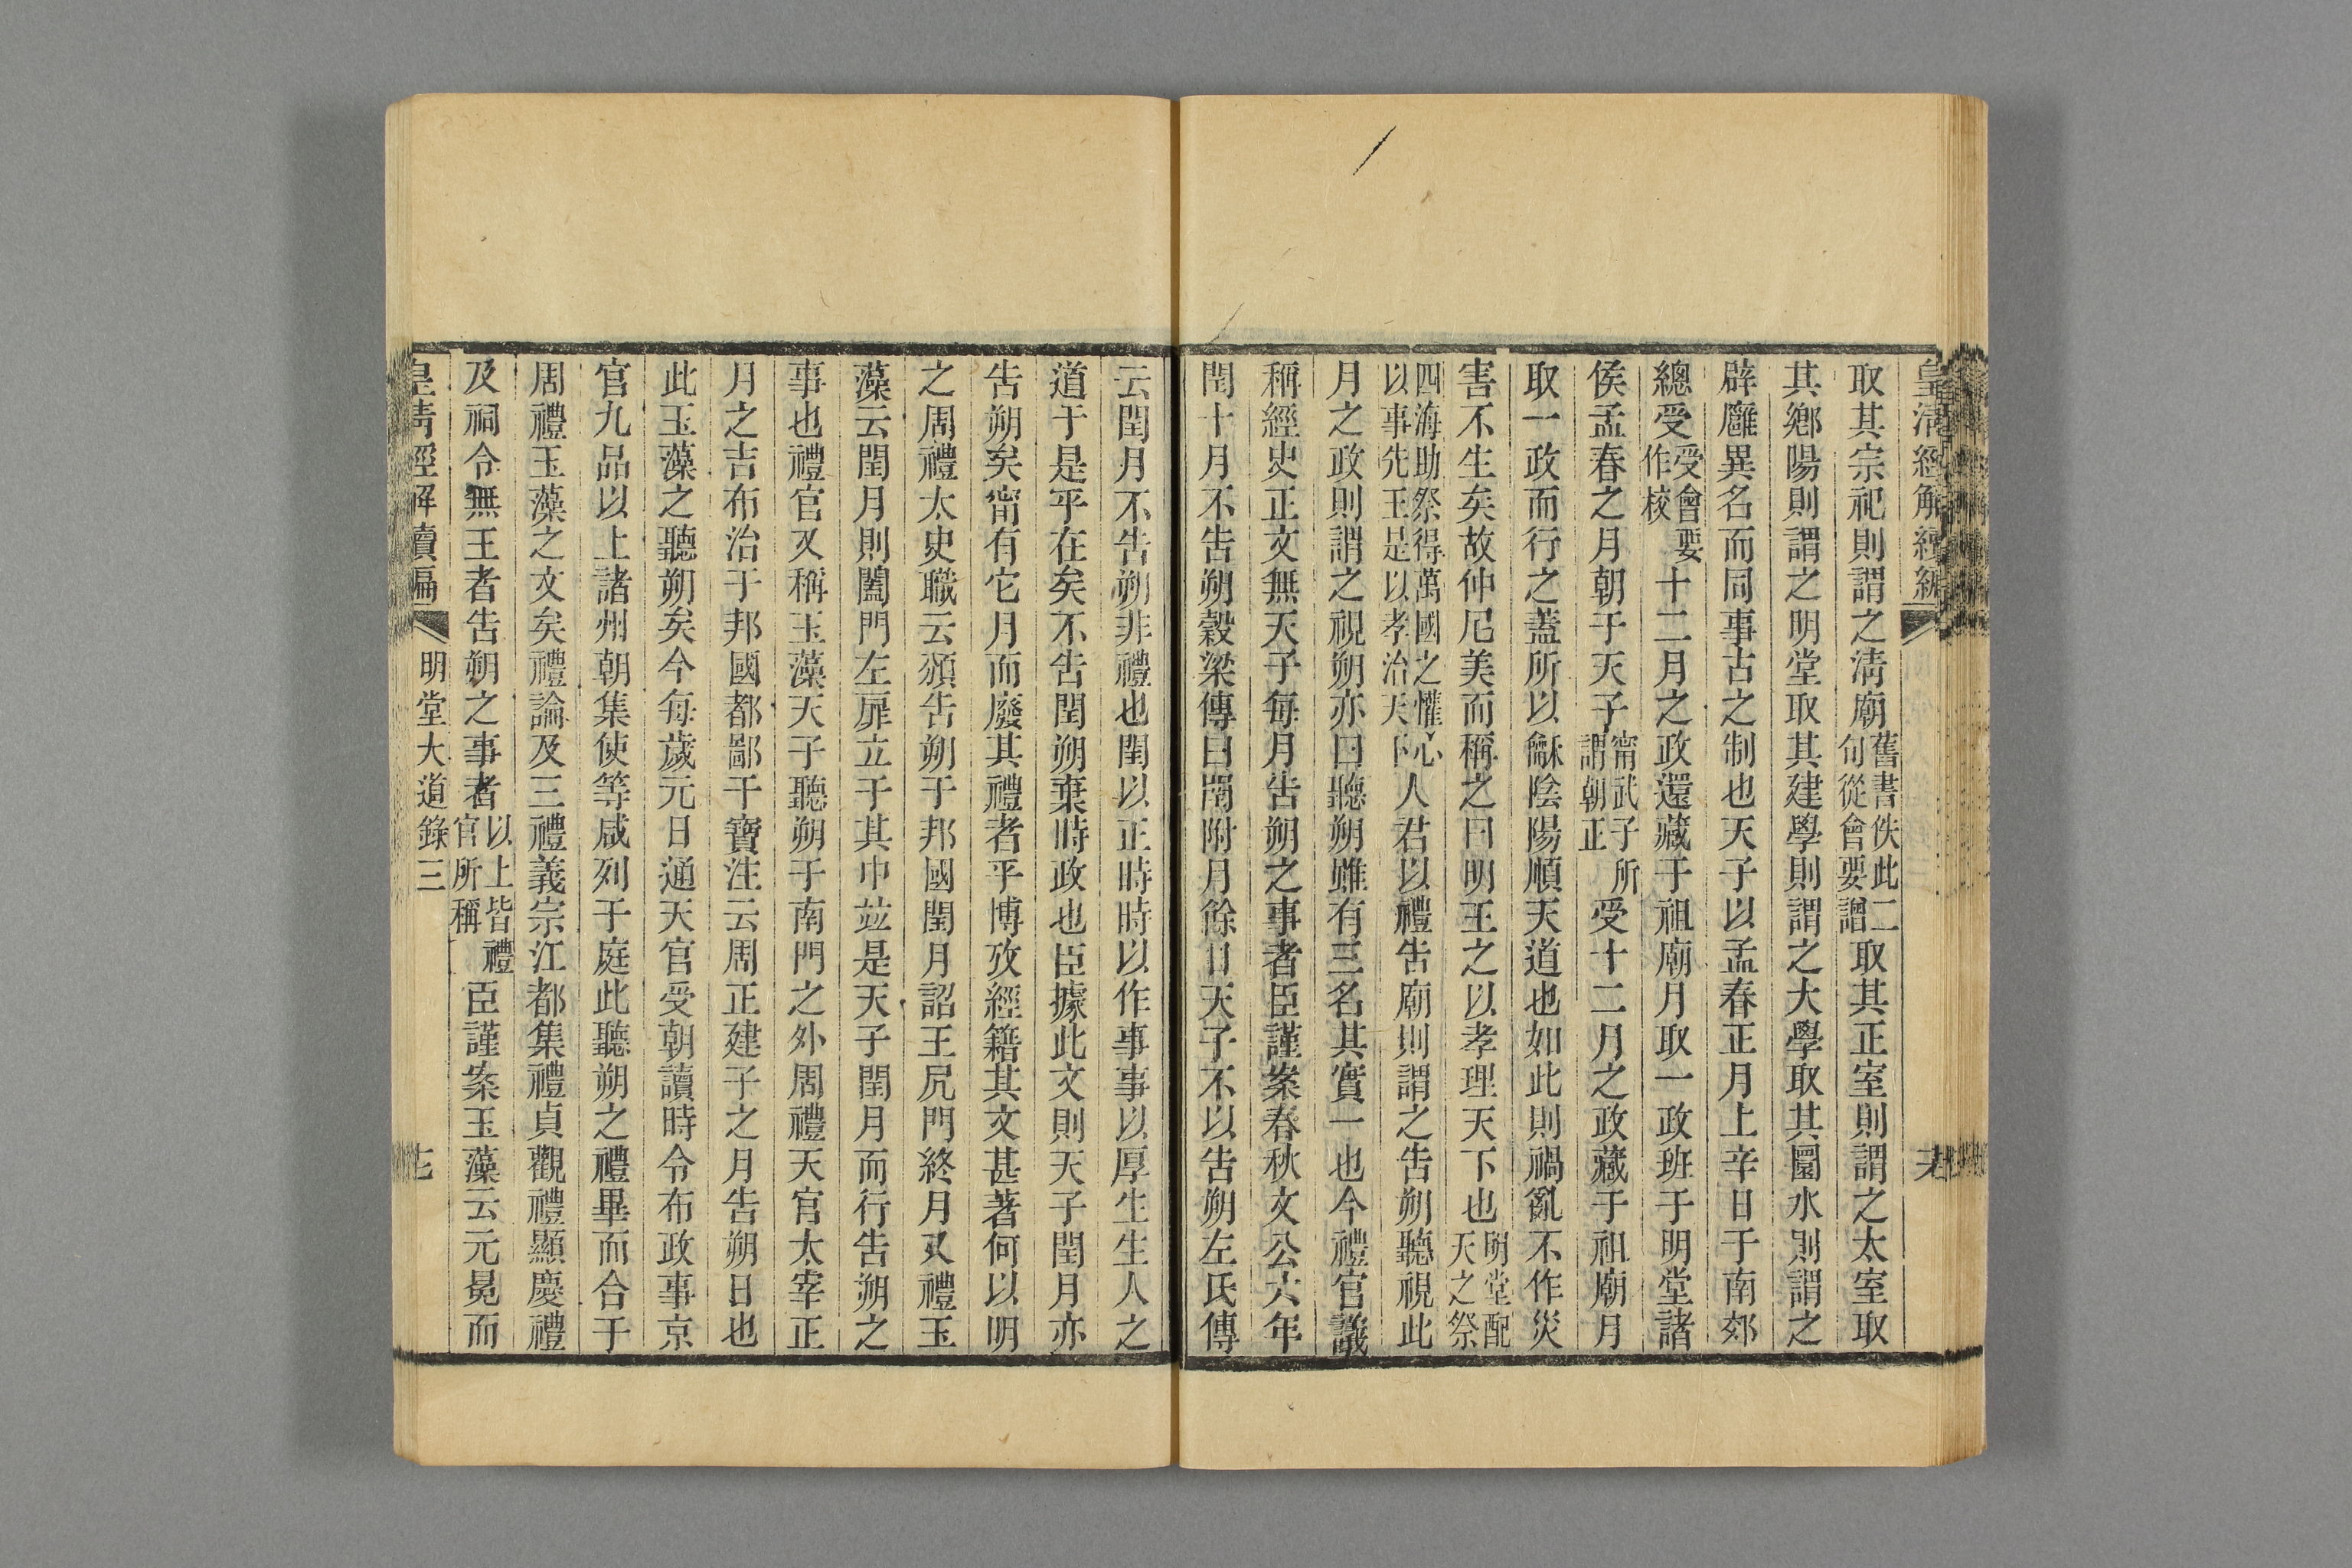 皇清經解續編
取其宗祀則謂之淸廟舊書佚此二句從會要譄取其正室則謂之太室取
其鄉陽則謂之明堂取其建學則謂之大學取其圜水則謂之
辟廱異名而同事古之制也天子以孟春正月上辛日于南郊
總受受會要作校十二月之政還藏于祖廟月取一政班于明堂諸
侯孟春之月朝于天子甯武子所謂朝正受十二月之政藏于祖廟月
取一政而行之蓋所以龢陰陽順天道也如此則禍亂不作災
害不生矣故仲尼美而稱之曰明王之以孝理天下也明堂配天之祭
四海助祭得萬國之懽心以事先王是以孝治天下人君以禮告廟則謂之告朔聽視此
月之政則謂之視朔亦曰聽朔雖有三名其實一也今禮官議
稱經史正文無天子每月告朔之事者臣謹案春秋文公六年
閏十月不告朔穀梁傳曰閏附月餘日天子不以告朔左氏傳
云閏月不告朔非禮也閏以正時時以作事事以厚生生人之
道于是乎在矣不告閏朔棄時政也臣據此文則天子閏月亦
告朔矣甯有它月而廢其禮者乎博攷經籍其文甚著何以明
之周禮太史職云頒告朔于邦國閏月詔王凥門終月又禮玉
藻云閏月則闔門左扉立于其中竝是天子閏月而行告朔之
事也禮官又稱玉藻天子聽朔于南門之外周禮天官太宰正
月之吉布治于邦國都鄙干寶注云周正建子之月告朔日也
此玉藻之聽朔矣今每歲元日通天官受朝讀時令布政事京
官九品以上諸州朝集使等咸列于庭此聽朔之禮畢而合于
周禮玉藻之文矣禮論及三禮義宗江都集禮貞觀禮顯慶禮
及祠令無王者告朔之事者以上皆禮官所稱臣謹案玉藻云元冕而
皇清經解續編 明堂大道錄三 七